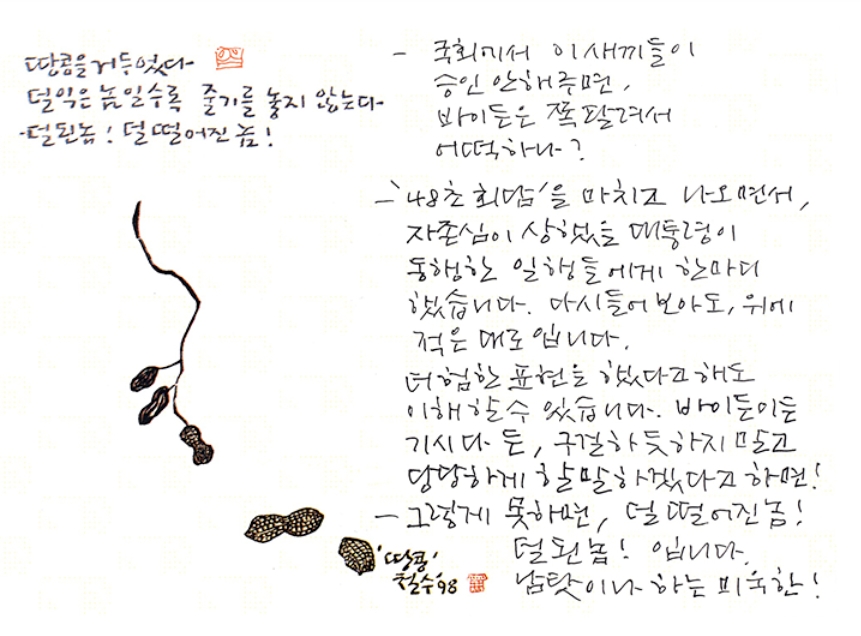 땅콩을 거두었다
덜익은 놈일수록 줄기를 놓지 않는다
덜된놈! 덜떨어진 놈!
- 국회에서 이 새끼들이
승인 안해주면,
바이든은 쪽팔려서
어떡하나?
- '48초 회담'을 마치고 나오면서,
자존심이 상했을 대통령이
동행한 일행들에게 한마디
했습니다. 다시들어보아도, 위에
적은 대로입니다.
더 험한 표현을 했다고 해도
이해할 수 있습니다. 바이든이든
기시다 든, 구걸하듯하지 말고
당당하게 할말하겠다고 하면!
- 그렇게 못하면, 덜떨어진놈!
덜된놈! 입니다.
남탓이나 하는 미욱한!
'땅콩'
철수 '98